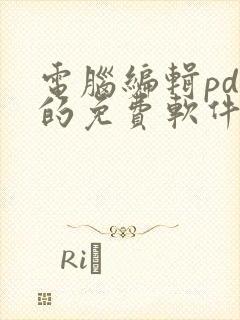 電腦編輯pd
的免費軟件
Ri